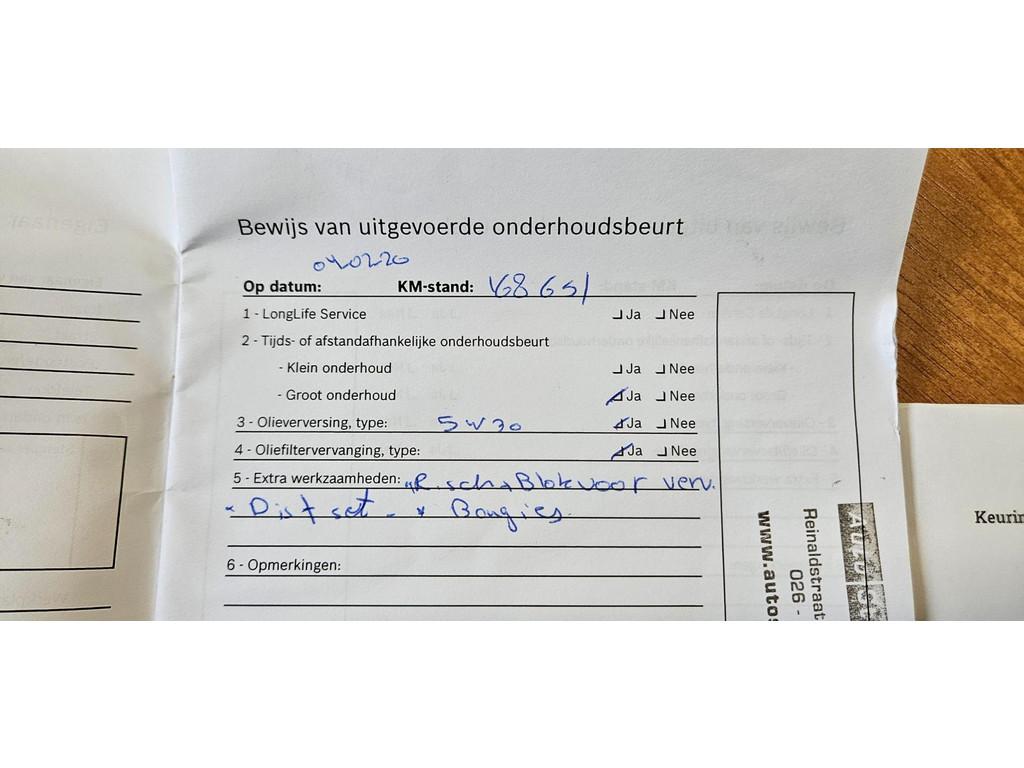 Bewijs van uitgevoerde onderhoudsbeurt
04.02.20
Op datum: KM-stand: 168651
1 - LongLife Service Ja Nee
2 - Tijds- of afstandafhankelijke onderhoudsbeurt
- Klein onderhoud Ja Nee
- Groot onderhoud Ja Nee
3 - Olieverversing, type: 5W30 Ja Nee
4 - Oliefiltervervanging, type: Ja Nee
5 - Extra werkzaamheden: R.sch + Blok voor verv.
* Dist set - * Bougies
6 - Opmerkingen:
Reinaldstraat
026 -
www.autos
Keurin
Eigenaar